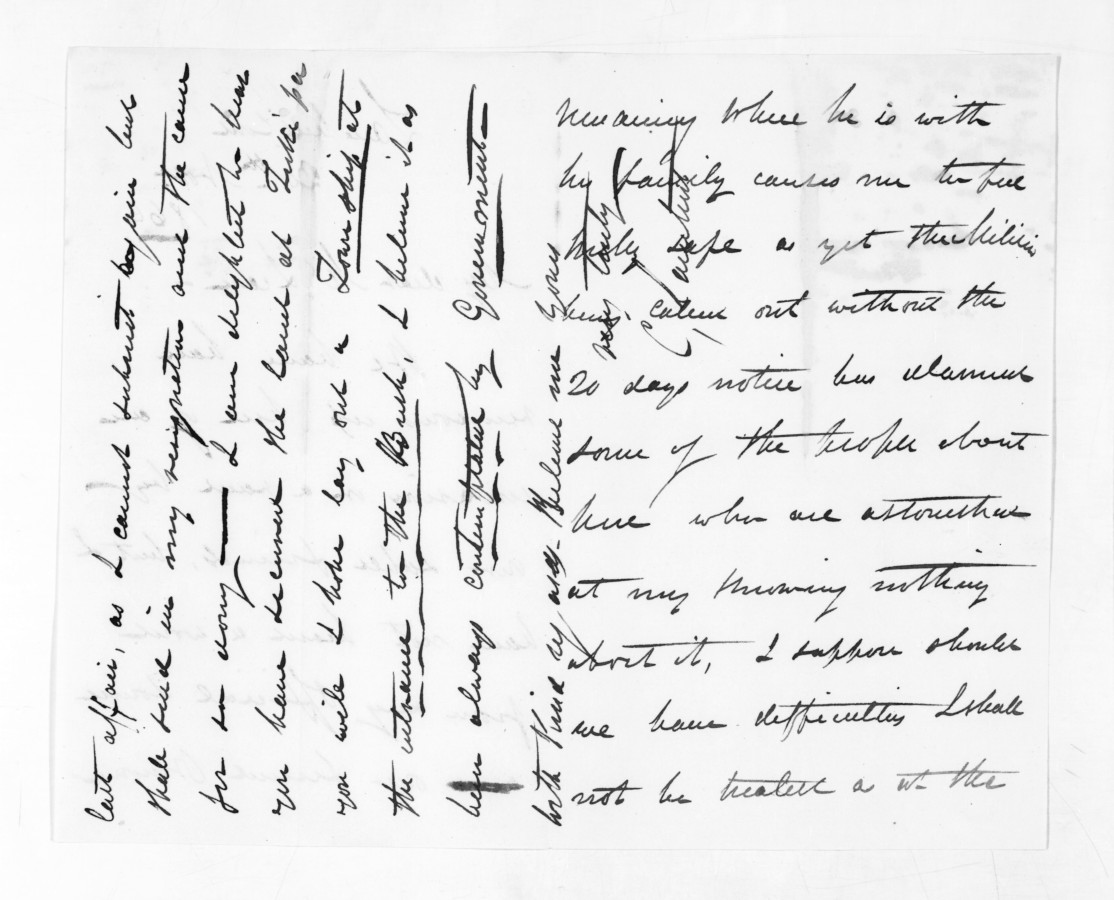 remaining where he is with
his family causes me to feel
truly safe as yet the Militia
being called out without the
20 days notice has alarmed
some of the people about
here who are astonished
at my knowing nothing
about it, I suppose should
we have difficulties I shall
not be treated as in the
last affair, as I cannot submit again but
shall send in my resignation and the cause
for so doing — I am delighted to hear
you have secured the land at Tuki
you will I hope lay out a Township at
the entrance to the Bush, I believe it as
been always contemplated by Government
with Kind regards Believe me Yours
very truly